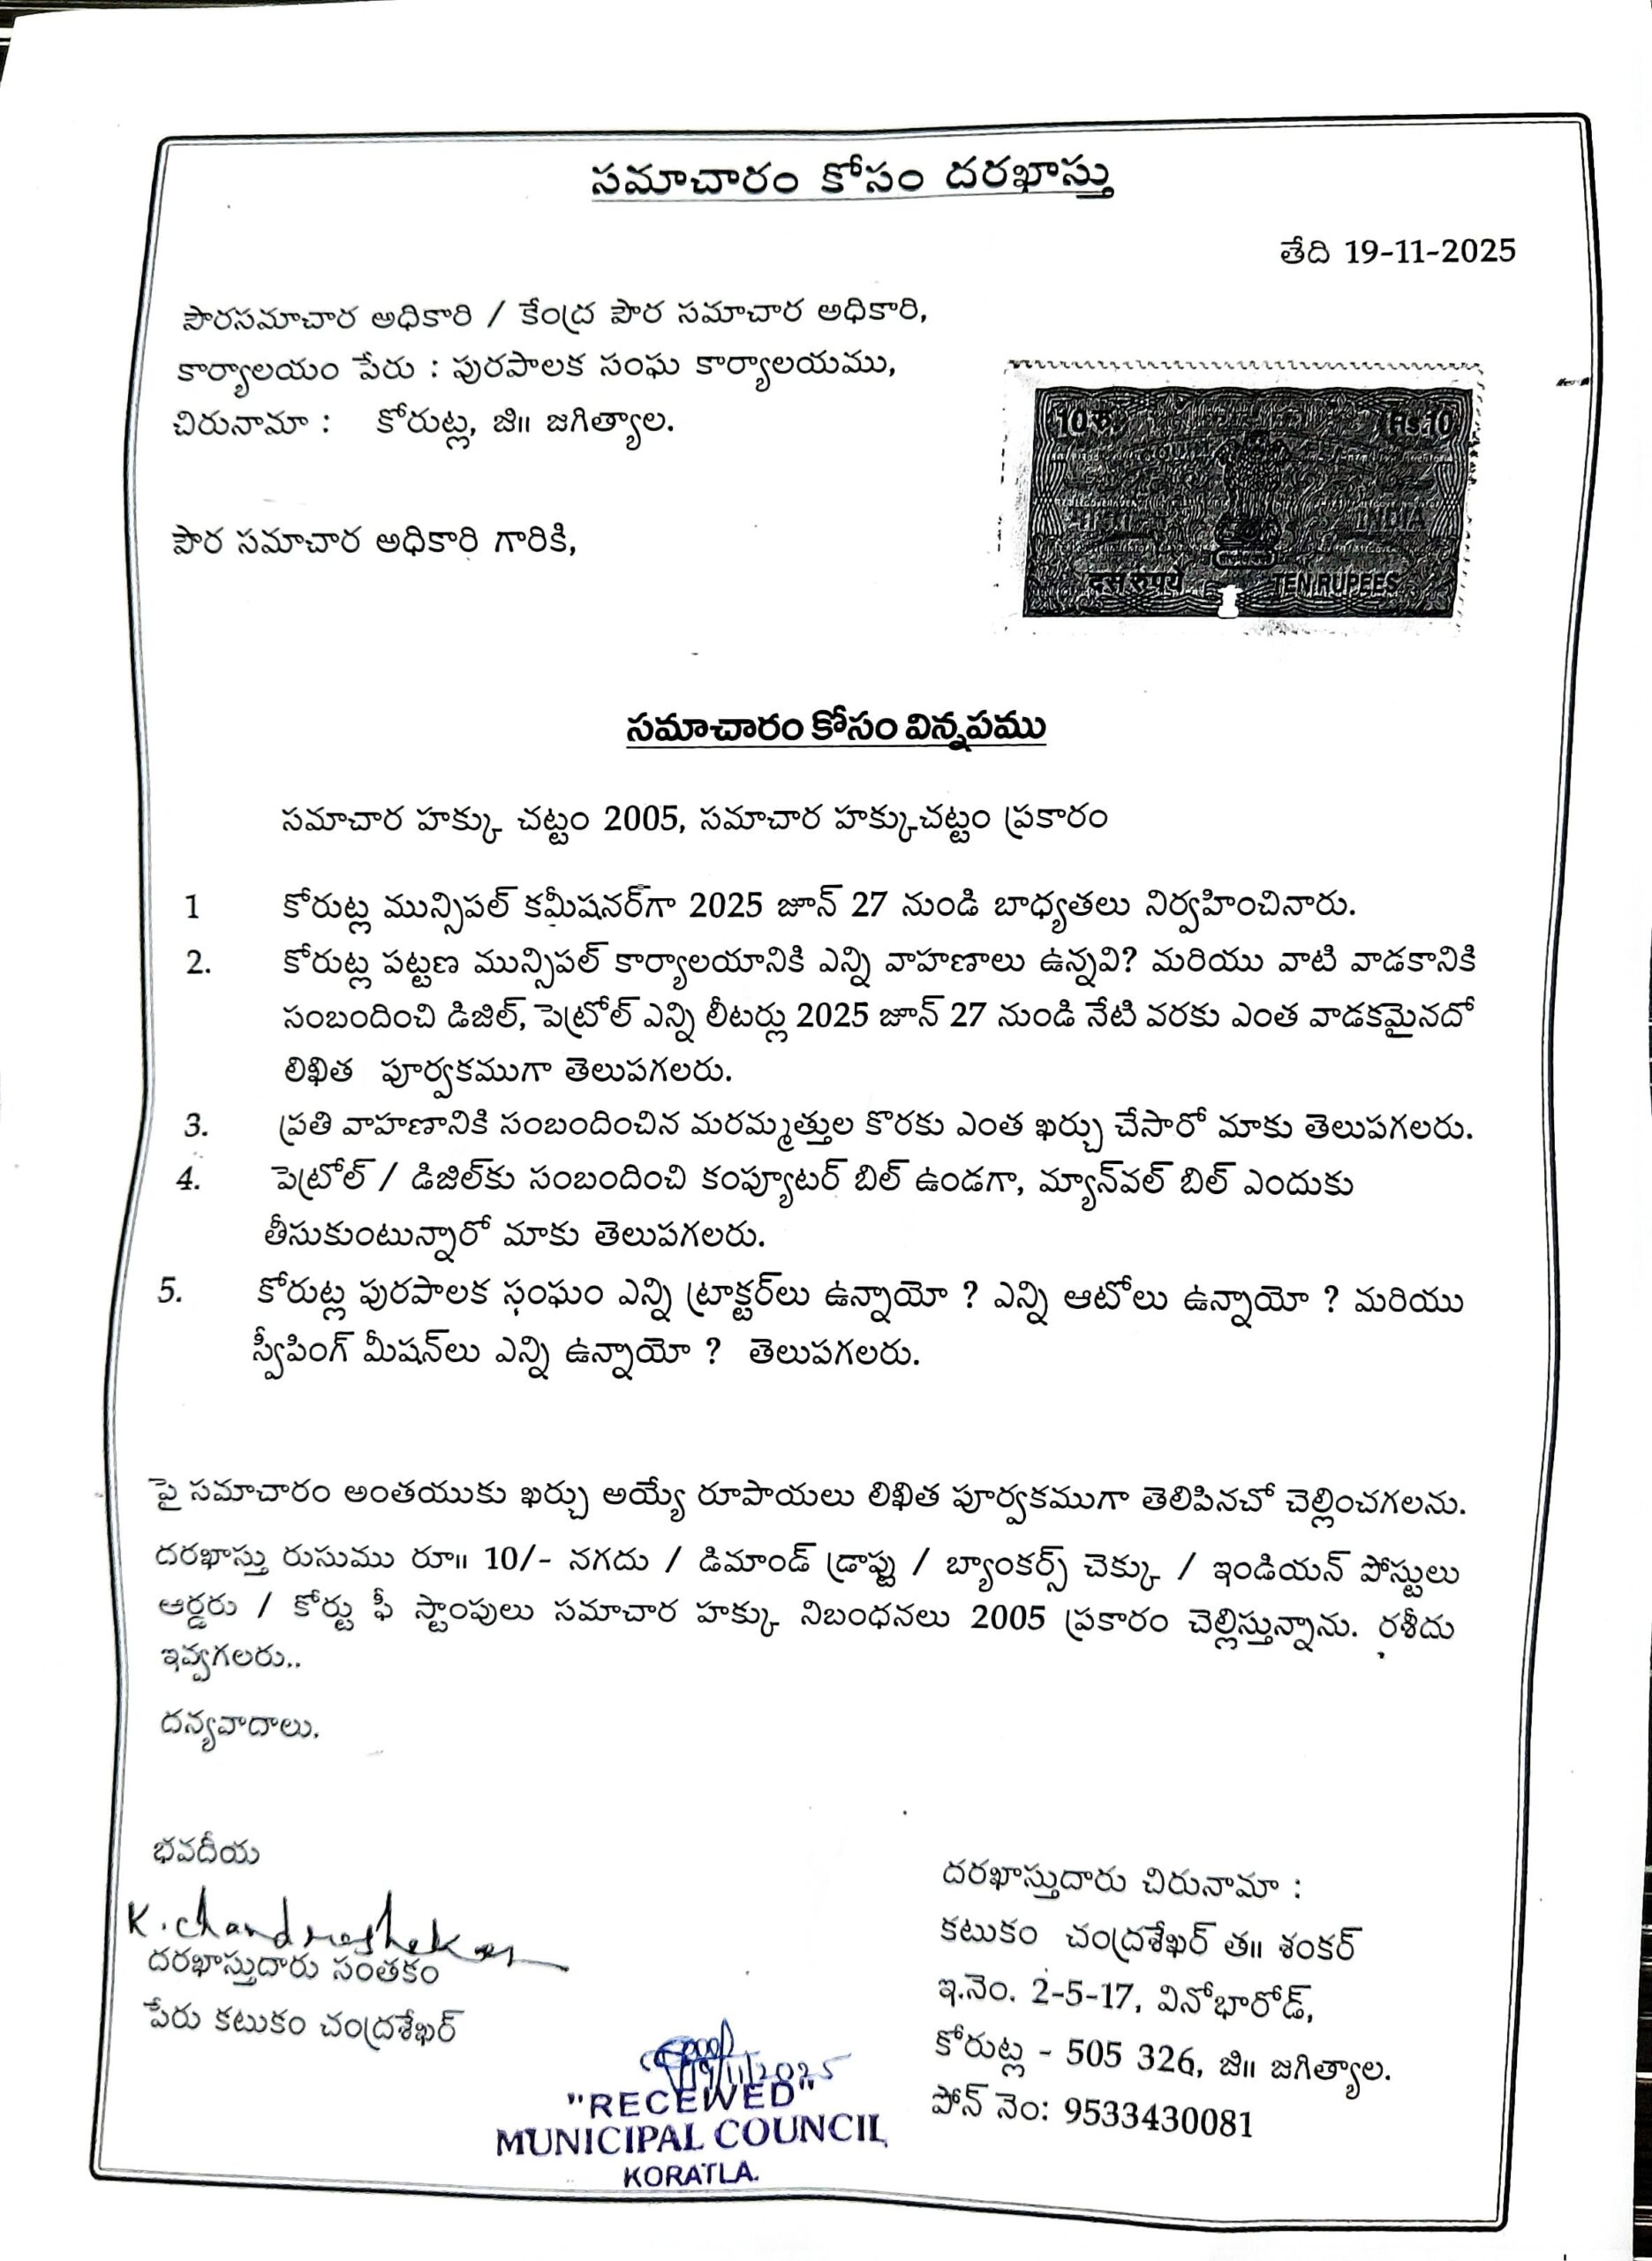 సమాచారం కోసం దరఖాస్తు
తేది 19-11-2025
పౌరసమాచార అధికారి / కేంద్ర పౌర సమాచార అధికారి,
కార్యాలయం పేరు : పురపాలక సంఘ కార్యాలయము,
చిరునామా : కోరుట్ల, జి॥ జగిత్యాల.
10 रु. Rs.10
INDIA
दस रुपये TEN RUPEES
పౌర సమాచార అధికారి గారికి,
సమాచారం కోసం విన్నపము
సమాచార హక్కు చట్టం 2005, సమాచార హక్కుచట్టం ప్రకారం
1 కోరుట్ల మున్సిపల్ కమీషనర్‌గా 2025 జూన్ 27 నుండి బాధ్యతలు నిర్వహించినారు.
2. కోరుట్ల పట్టణ మున్సిపల్ కార్యాలయానికి ఎన్ని వాహణాలు ఉన్నవి? మరియు వాటి వాడకానికి
సంబందించి డిజిల్, పెట్రోల్ ఎన్ని లీటర్లు 2025 జూన్ 27 నుండి నేటి వరకు ఎంత వాడకమైనదో
లిఖిత పూర్వకముగా తెలుపగలరు.
3. ప్రతి వాహణానికి సంబందించిన మరమ్మత్తుల కొరకు ఎంత ఖర్చు చేసారో మాకు తెలుపగలరు.
4. పెట్రోల్ / డిజిల్‌కు సంబందించి కంప్యూటర్ బిల్ ఉండగా, మ్యాన్‌వల్ బిల్ ఎందుకు
తీసుకుంటున్నారో మాకు తెలుపగలరు.
5. కోరుట్ల పురపాలక సంఘం ఎన్ని ట్రాక్టర్‌లు ఉన్నాయో ? ఎన్ని ఆటోలు ఉన్నాయో ? మరియు
స్వీపింగ్ మీషన్‌లు ఎన్ని ఉన్నాయో ? తెలుపగలరు.
పై సమాచారం అంతయుకు ఖర్చు అయ్యే రూపాయలు లిఖిత పూర్వకముగా తెలిపినచో చెల్లించగలను.
దరఖాస్తు రుసుము రూ॥ 10/- నగదు / డిమాండ్ డ్రాఫ్టు / బ్యాంకర్స్ చెక్కు / ఇండియన్ పోస్టులు
ఆర్డరు / కోర్టు ఫీ స్టాంపులు సమాచార హక్కు నిబంధనలు 2005 ప్రకారం చెల్లిస్తున్నాను. రశీదు
ఇవ్వగలరు..
దన్యవాదాలు.
భవదీయ
K. Chandrashekar
దరఖాస్తుదారు సంతకం
పేరు కటుకం చంద్రశేఖర్
దరఖాస్తుదారు చిరునామా :
కటుకం చంద్రశేఖర్ త॥ శంకర్
ఇ.నెం. 2-5-17, వినోభారోడ్,
కోరుట్ల - 505 326, జి॥ జగిత్యాల.
పోన్ నెం: 9533430081
19/11/2025
"RECEIVED"
MUNICIPAL COUNCIL
KORATLA.